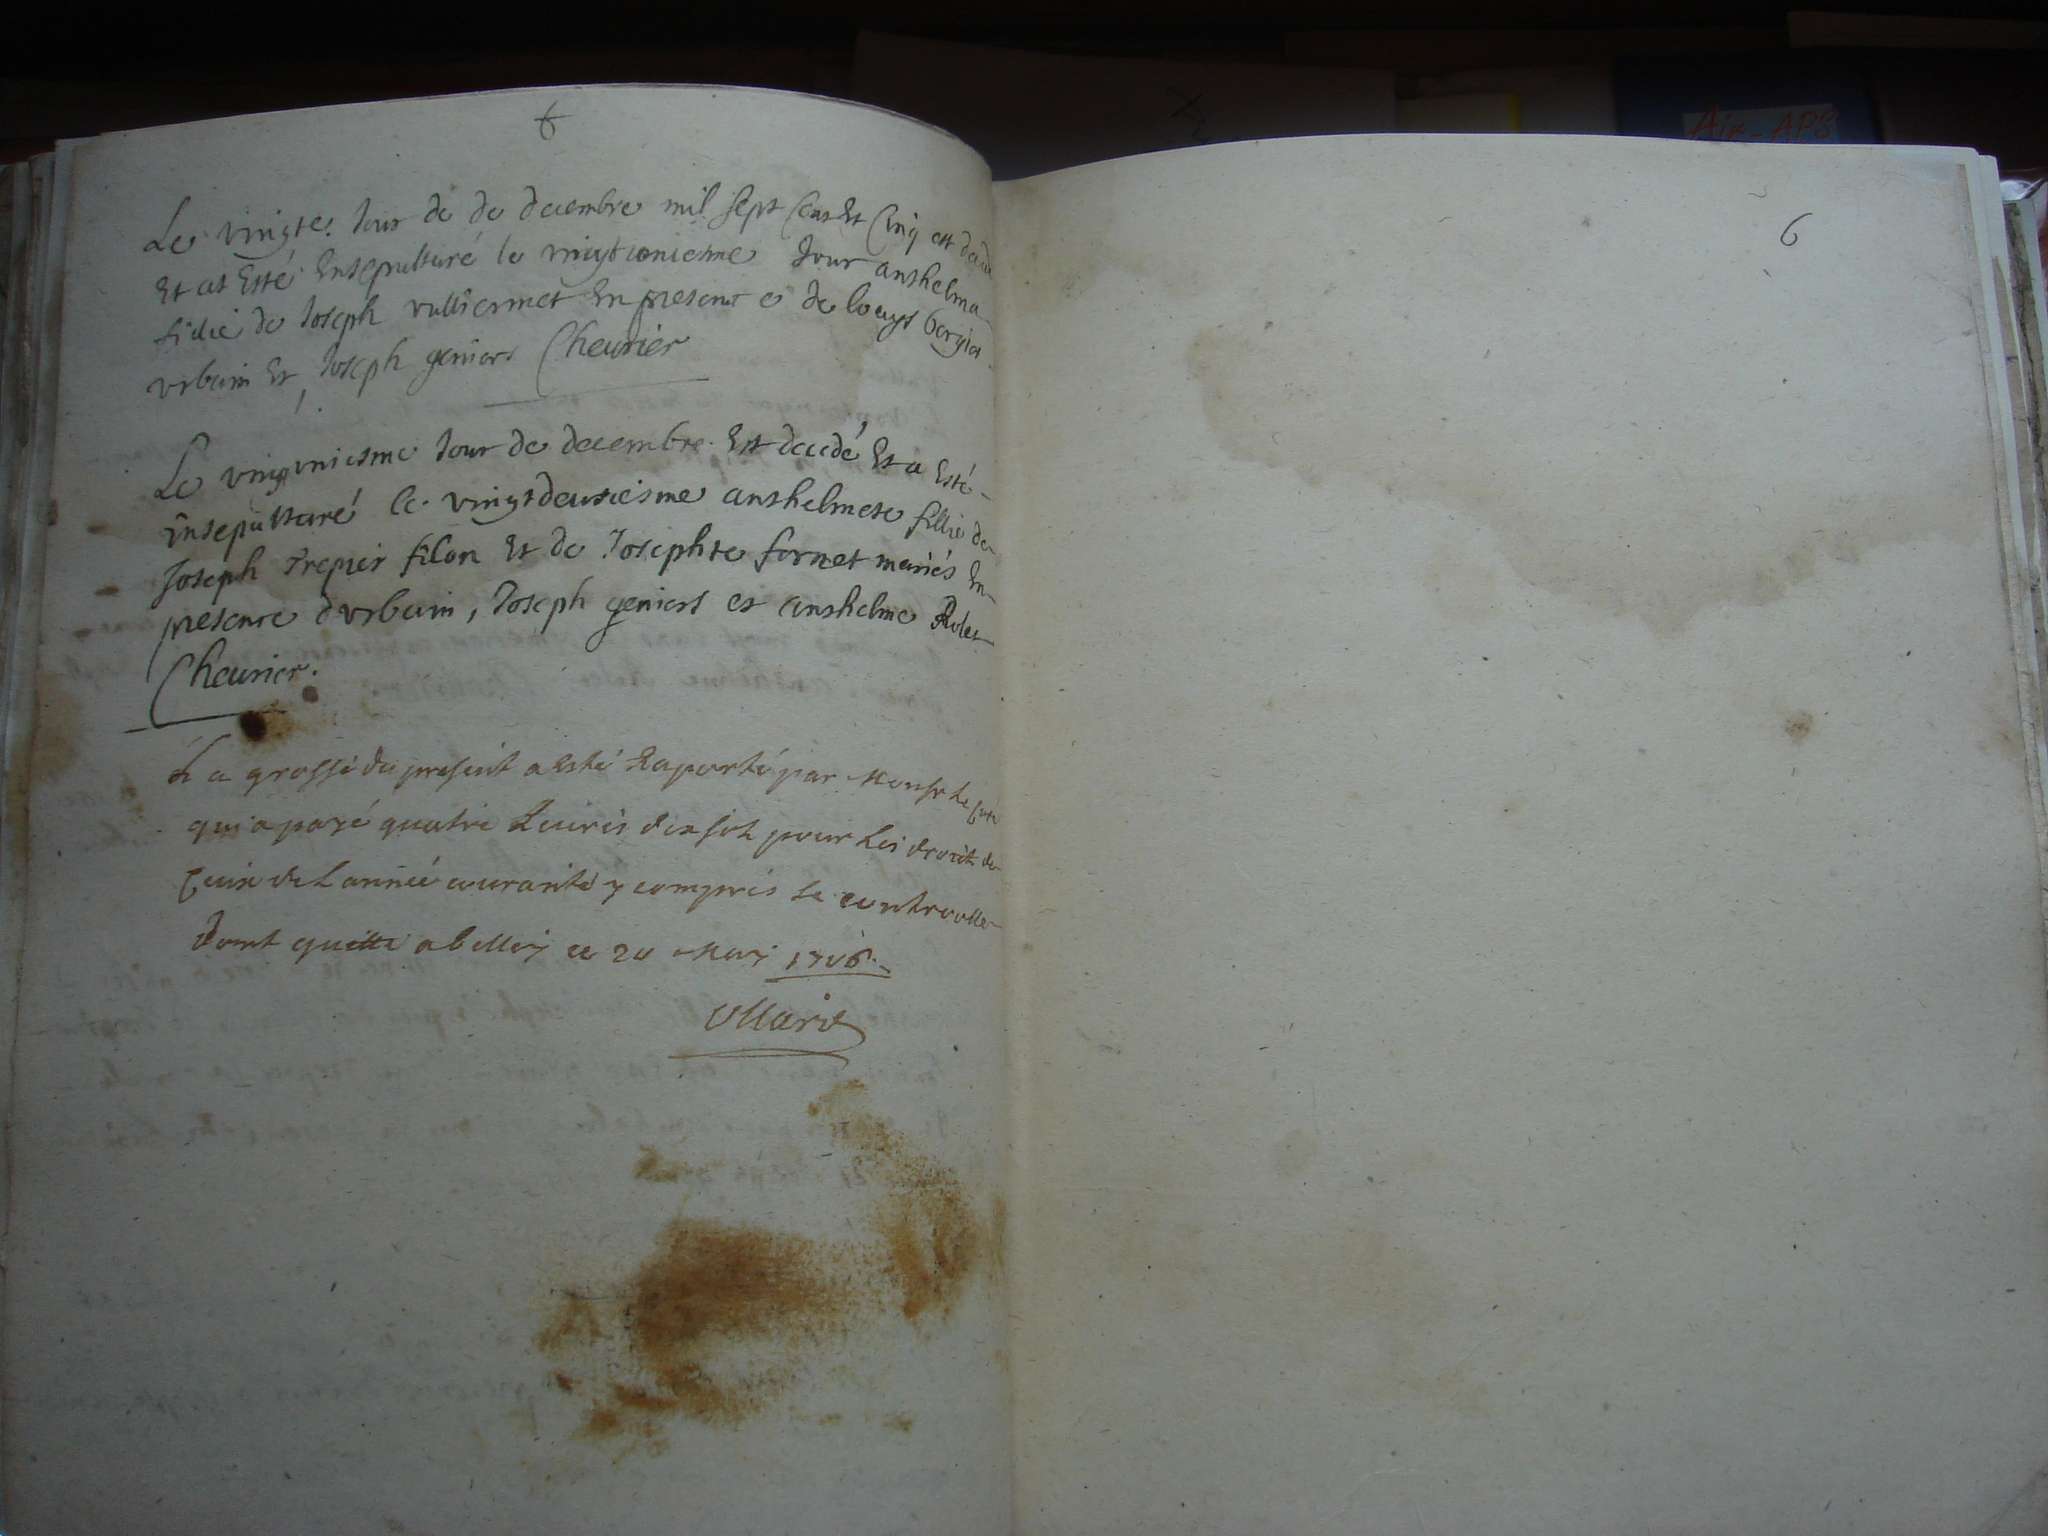 6
Le vingte. Jour de de decembre mil sept Cens Et Cinq est decedé
Et at Esté Ensepulturé le vingtuniesme Jour anthelma
fillie de Joseph vulliermet En presence de louys borgia
urbain Et Joseph geniors Chevrier
Le vinguniesme Jour de decembre. Est decedé Et a Esté
Ensepulturé le. vingtdeuxiesme anthelmete fillie de
Joseph Trepier filon Et de Josephte fornet mariés En
presence d urbain, Joseph geniors et anthelme Rolet
Chevrier.
La grosse du present a esté Raporté par Monsr le Curé
qui a payé quatre Livres dix sols pour les droits de
Ceux de L année courante y compris le controolle
dont quitte a belley ce 20 May 1706.
6
Air-APS